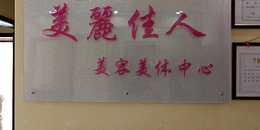 美麗佳人
美容美体中心